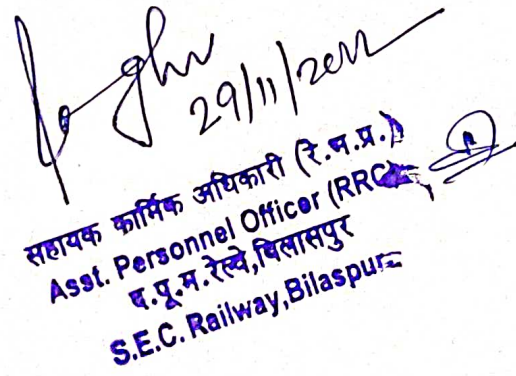 29/11/2022
सहायक कार्मिक अधिकारी (रे.भ.प्र.)
Asst. Personnel Officer (RRC)
द.पू.म.रेल्वे,बिलासपुर
S.E.C. Railway,Bilaspur